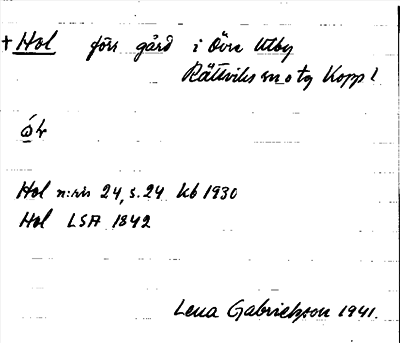 + Hol förr gård i Övre Utby
Rättviks sn o tg Kopp l
Hol n:ris 24, s. 24 kb 1930
Hol LSA 1842
Lena Gabrielsson 1941.